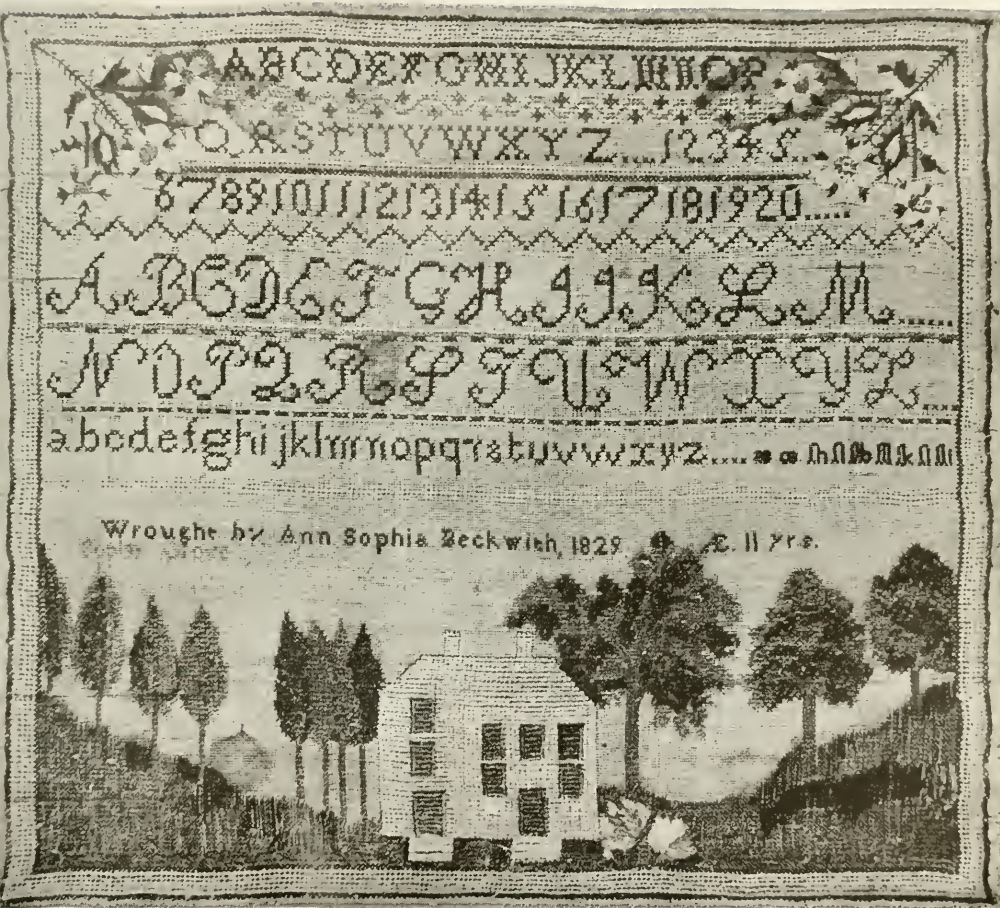 ABCDEFGHIJKLMNOP
QRSTUVWXYZ....12345..
67891011121314151617181920.....
ABCDEFGHIJKLM......
NOPQRSTUWXYZ....
abcdefghijklmnopqrstuvwxyz....
Wrought by Ann Sophia Beckwith, 1829 Æ. 11 yrs.